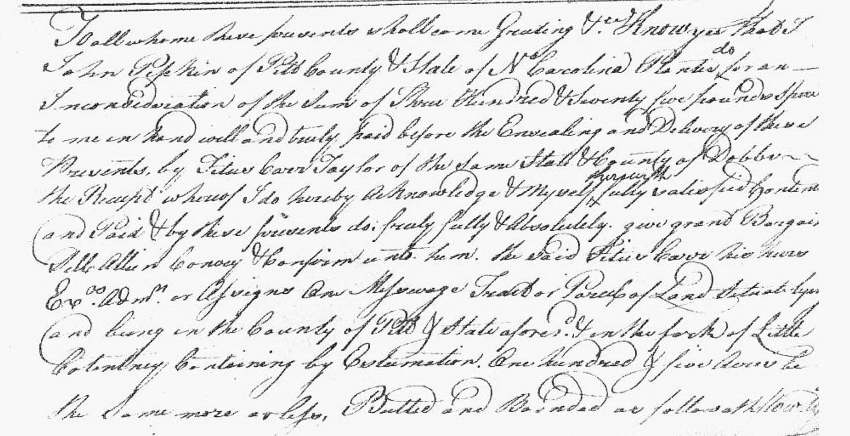 To all whome these presents shall come Greeting &c. Know yee that I
John Pipkin of Pitt County & State of No Carolina Planter do for an
Inconsideration of the Sum of Three Hundred & Seventy five pounds
to me in hand well and truly paid before the Ensealing and Delivery of these
Presents, by Titus Carr Taylor of the Same State & County of Dobbs
the Receipt whereof I do hereby Acknowledge & Myself therewith fully satisfied Content
and Paid & by these presents do, freely fully & Absolutely. give grant Bargain
Sell Alien Convey & Confirm unto him. the said Titus Carr his heirs
Exos. Adms. or Assigns One Messuage Tract or Parcel of Land Situate
and being in the County of Pitt & State aforesd. & in the fork of Little
Cotentney Containing by Estamation. One hundred & five Acres be
the Same more or less, Butted and Bounded as followeth